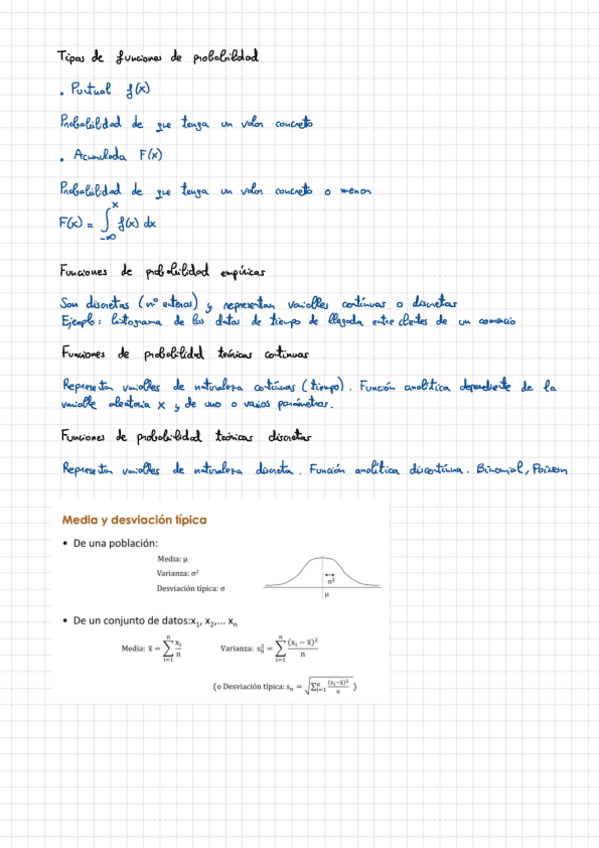 Tipos de funciones de probabilidad
• Puntual f(x)
Probabilidad de que tenga un valor concreto
• Acumulada F(x)
Probabilidad de que tenga un valor concreto o menor
F(x) = ∫_{-∞}^{x} f(x) dx
Funciones de probabilidad empíricas
Son discretas (nº enteros) y representan variables continuas o discretas
Ejemplo: histograma de los datos de tiempo de llegada entre clientes de un comercio
Funciones de probabilidad teóricas continuas
Representan variables de naturaleza continuas (tiempo). Función analítica dependiente de la
variable aleatoria x y de uno o varios parámetros.
Funciones de probabilidad teóricas discretas
Representan variables de naturaleza discreta. Función analítica discontinua. Binomial, Poisson
Media y desviación típica
• De una población:
Media: μ
Varianza: σ²
Desviación típica: σ
σ²
μ
• De un conjunto de datos:x₁, x₂,... xₙ
Media: x̄ = ∑_{i=1}^{n} x_i/n Varianza: s_n^2 = ∑_{i=1}^{n} (x_i − x̄)²/n
(o Desviación típica: s_n = √(∑_{i=1}^{n} (x_i−x̄)²/n) )